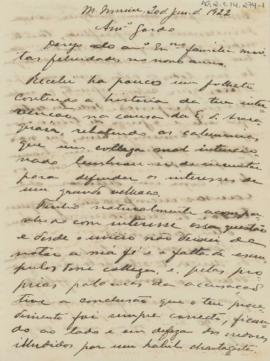 M. Mirim, 20 de Jan. de 1922
Am.º Gordo
Desejo ao am.º e Ex.ma familia mui-
tas felicidades no novo anno.
Recebi ha pouco um folheto
contendo a historia de tua inter
venção na causa da E. S. Arara
quara, relatando as calumnias
que um collega mal intencio
nado lembrou-se de inventar
para defender os interesses de
um grande velhaco.
Tenho naturalmente acompa-
nhado com interesse essa questão
e desde o inicio não deixei de
notar a má fé e a falta de escru
pulos desse collega, e, pelas pro
prias palavras da accusação
tive a conclusão que o teu proce
dimento foi sempre correcto, fican
do ao lado e em defeza dos credores
illudidos por um habil chantagista